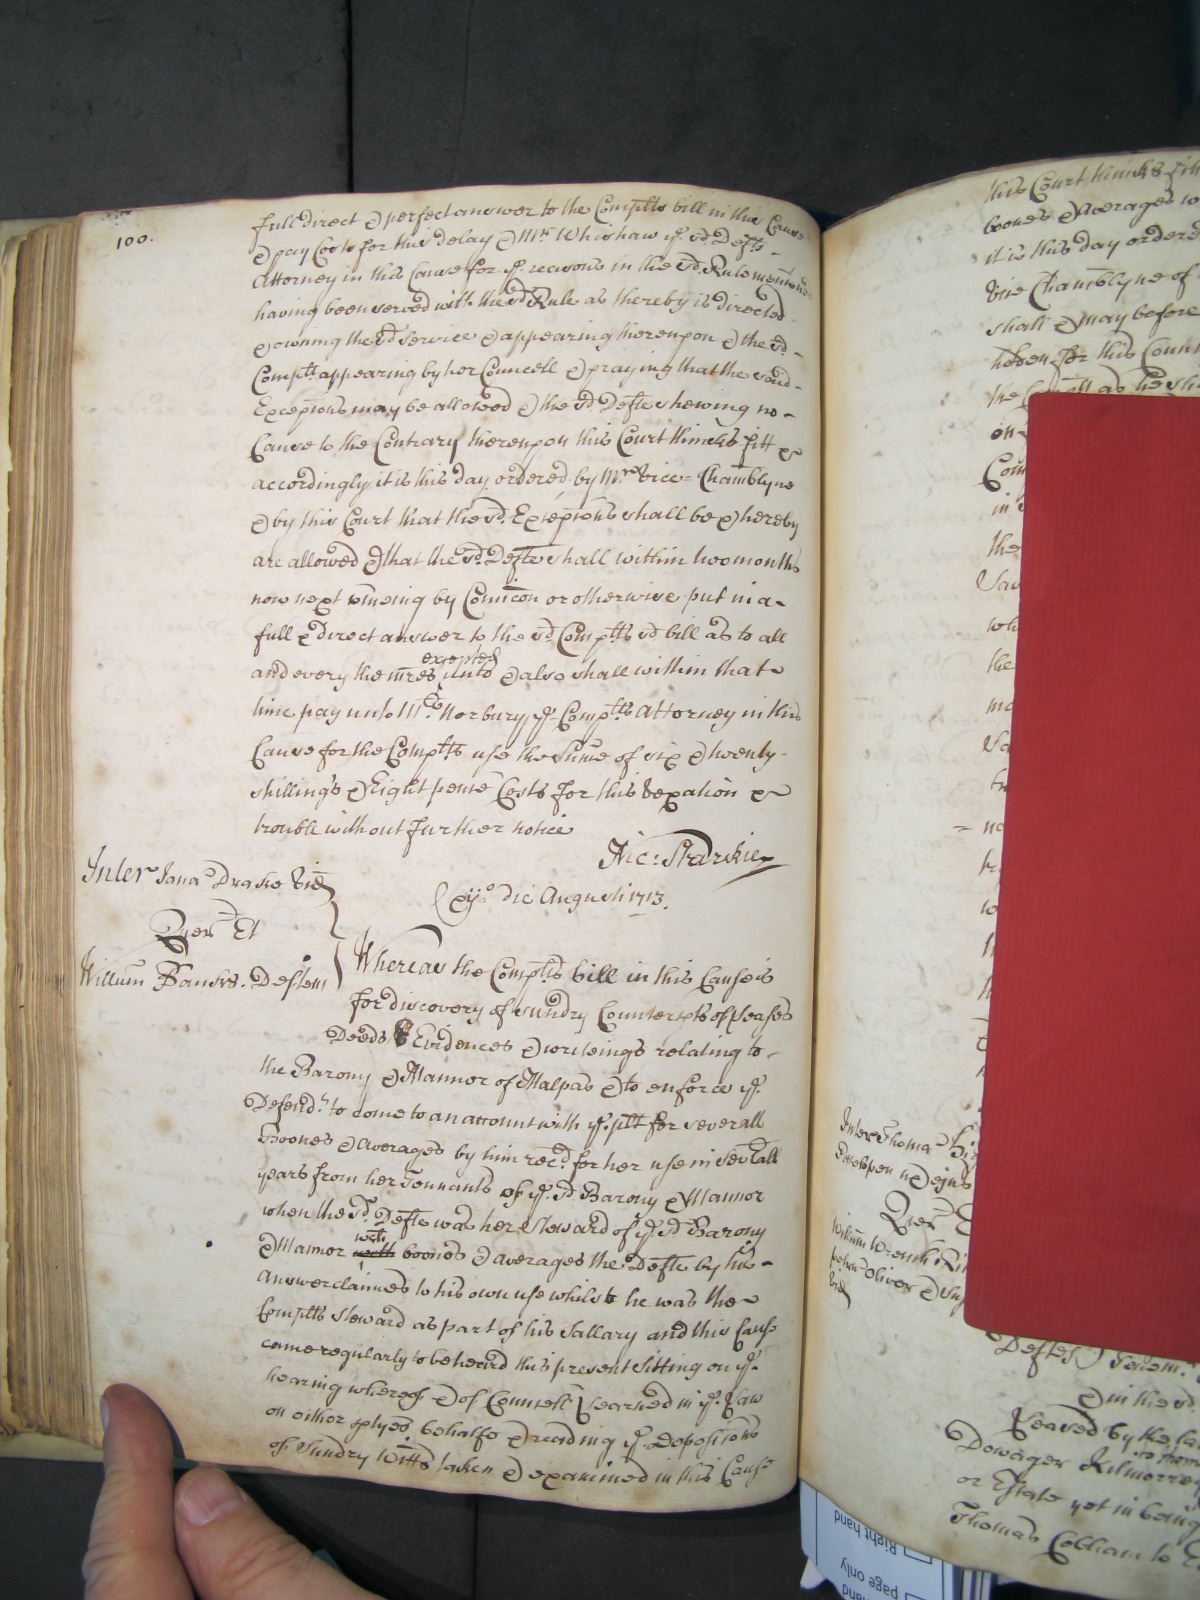 100.
full direct & perfect answer to the Complts bill in this Cause
& pay Costs for this delay & Mr Whishaw ye sd Defts
Attorney in this Cause for ye reasons in the sd Rule mentoned
having been served with the sd Rule as thereby is directed
& owning the sd service & appearing thereupon & the sd
Complt appearing by her Councell & praying that the said
Excepcons may be allowed & the sd Defte shewing no
Cause to the Contrary thereupon this Court thinks fitt &
accordingly it is this day ordered by Mr Vice-Chamblyne
& by this Court that the sd Excepcons shall be & hereby
are allowed & that the sd Defte shall within two months
now next comeing by Comicon or otherwise put in a
full & direct answer to the sd Complts sd bill as to all
and every the mres excepted unto & also shall within that
time pay unto Mr Norbury ye Complts Attorney in this
Cause for the Complts use the sume of six & twenty
shillings & Eight pence Costs for this vexation &
trouble without further notice
Nic: Starkie
Inter Jana Drake vid
Quer Et
Willum Banks. Deftem
die Augusti 1713.
Whereas the Complts bill in this Cause is
for discovery of sundry Counterpts of Leases
Deeds Evidences & writeings relating to
the Barony & Mannor of Malpas & to enforce ye
Defendt to come to an account with ye plt for severall
Boones & averages by him recd for her use in sevrall
years from her Tennants of ye sd Barony & Mannor
when the sd Defte was her Steward of ye sd Barony
& Mannor wch boones & averages the Defte by his
answer claimes to his own use whilst he was the
Complts Steward as part of his Sallary and this Cause
came regularly to be heard this present sitting on ye
hearing whereof & of Councell learned in ye Law
on either ptyes behalfe & reading ye deposicons
of sundry Witts taken & examined in this Cause
this Court thinks fitt
boones & averages
it is this day ordered
Vice Chamblyne of
shall & may before
for this
the
Inter Thoma
Quer
Deftes
& in the sd
Leased by the
Dowager Kilmorrey
or Estate yet in being
Thomas Cobham to
Right hand
page only
hand